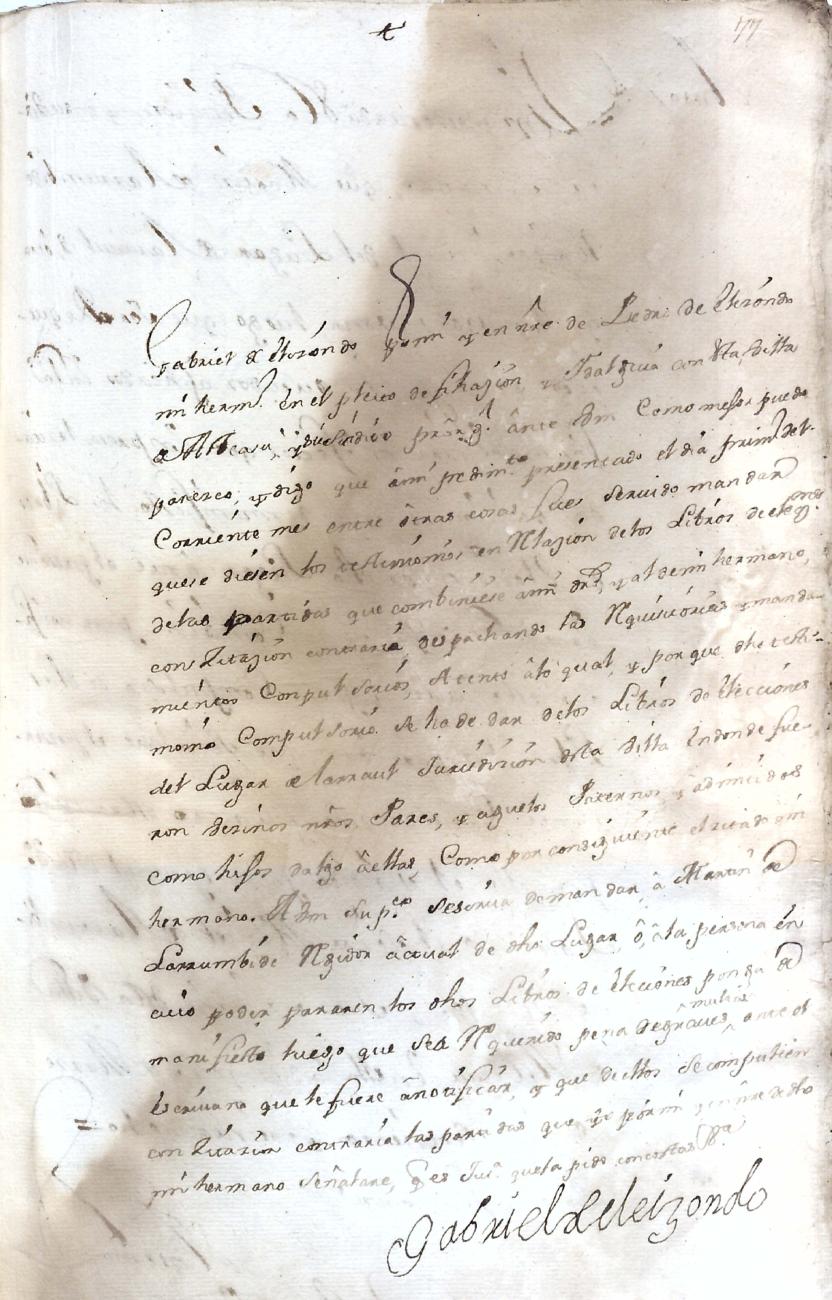 77
Gabriel de Eleizondo por mi y en nre de Pedro de Eleizondo
mi hermo. En el pleito de filiazion y Idalguia con esta Villa
de Alvear y su sindico pror gl ante Vm Como mejor puedo
parezco, y digo que a mi pedimto presentado el dia primo del
Corriente mes entre otras cosas fue servido mandar
que se diesen los testimonios en Relazion de los Libros de
de las partidas que combiniese a mi dro y al de mi hermano,
con Zitazion contraria despachando las Requisitorias y manda-
mientos Conpulsorios, Atento a lo qual, y porque dho testi-
monio Compulsorio se ha de dar de los Libros de elecciones
del Lugar de Larraul Jurisdizion de la Villa En donde fue-
ron vezinos nros Pares, y aguelos Paternos, y admitidos
como hijos dalgo a ellas, Como por consiguiente el zitado mi
hermano. A Vm Supco se sirva de mandar, a Martin de
Larrumbide Rejidor actual de dho Lugar, o, a la persona en
cuio poder pararen los dhos Libros de Elecciones ponga de
manifiesto luego que sea Requerido pena de graves multas, ante el
Escrivano que le fuere a notificar, y que dellos se compulsen
con Zitazion contraria las partidas que yo por mi y en nre de dho
mi hermano Señalare, q es Jusa que la pido con costas
Gabriel de Eleizondo